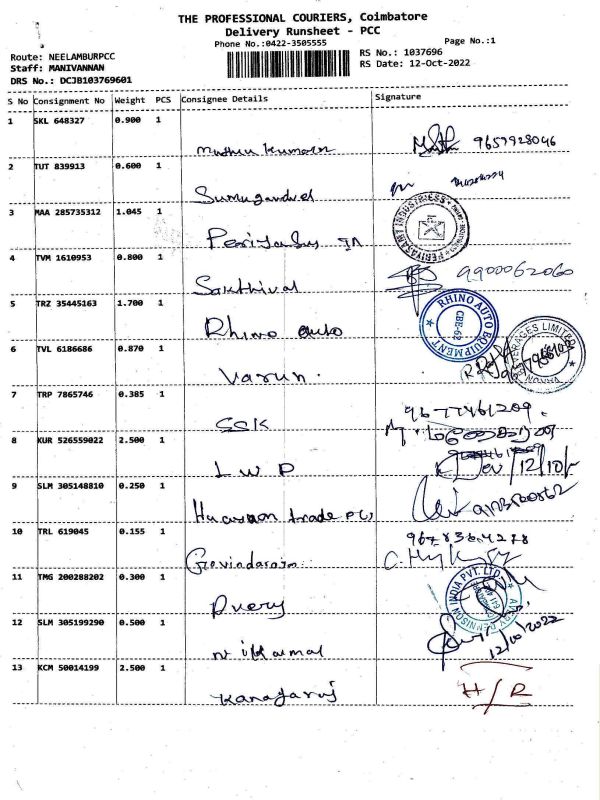 THE PROFESSIONAL COURIERS, Coimbatore
Delivery Runsheet - PCC
Phone No.:0422-3505555
Page No.:1
Route: NEELAMBURPCC
Staff: MANIVANNAN
DRS No.: DCJB103769601
RS No.: 1037696
RS Date: 12-Oct-2022
S No Consignment No Weight PCS Consignee Details Signature
1 SKL 648327 0.900 1
Muthu Kumaran 9657928046
2 TUT 839913 0.600 1
3 MAA 285735312 1.045 1
PERIYASAMY INDUSTRIESS
4 TVM 1610953 0.800 1
Sakthival 9900062060
5 TRZ 35445163 1.700 1
Rhino auto
RHINO AUTO EQUIPMENT
CBE-62
6 TVL 6186686 0.870 1
Varun.
VARUN BEVERAGES LIMITED
7 TRP 7865746 0.385 1
SSK 9677461209.
8 KUR 526559022 2.500 1
LWP
9 SLM 305148810 0.250 1
trade
10 TRL 619045 0.155 1
Govindaraj
11 TMG 200288202 0.300 1
Avery
AVERY DENNISON INDIA PVT. LTD.
12 SLM 305199290 0.500 1
12/10/2022
13 KCM 50014199 2.500 1
Kanagaraj H/R